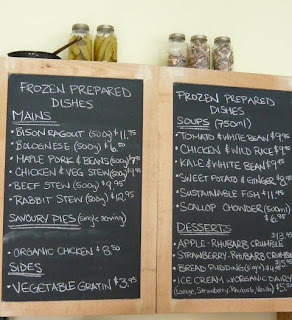 FROZEN PREPARED
DISHES
MAINS
• BISON RAGOUT (500g) $11.95
• BOLOGNESE (500g) $6.50
• MAPLE PORK & BEANS (500g)
• CHICKEN & VEG STEW (500g)
• BEEF STEW (500g) $9.95
• RABBIT STEW (500g) $12.95
SAVOURY PIES (single serving)
• ORGANIC CHICKEN $8.50
SIDES
• VEGETABLE GRATIN $3.95
FROZEN PREPARED
DISHES
SOUPS (750ml)
• TOMATO & WHITE BEAN
• CHICKEN & WILD RICE
• KALE & WHITE BEAN
• SWEET POTATO & GINGER
• SUSTAINABLE FISH $11.
• SCALLOP CHOWDER (500ml)
$6.95
DESSERTS
• APPLE-RHUBARB CRUMBLE
• STRAWBERRY-RHUBARB CRUMBLE
• BREAD PUDDING
• ICE CREAM w ORGANIC DAIRY
(Lovage, Strawberry, Rhubarb, Vanilla)